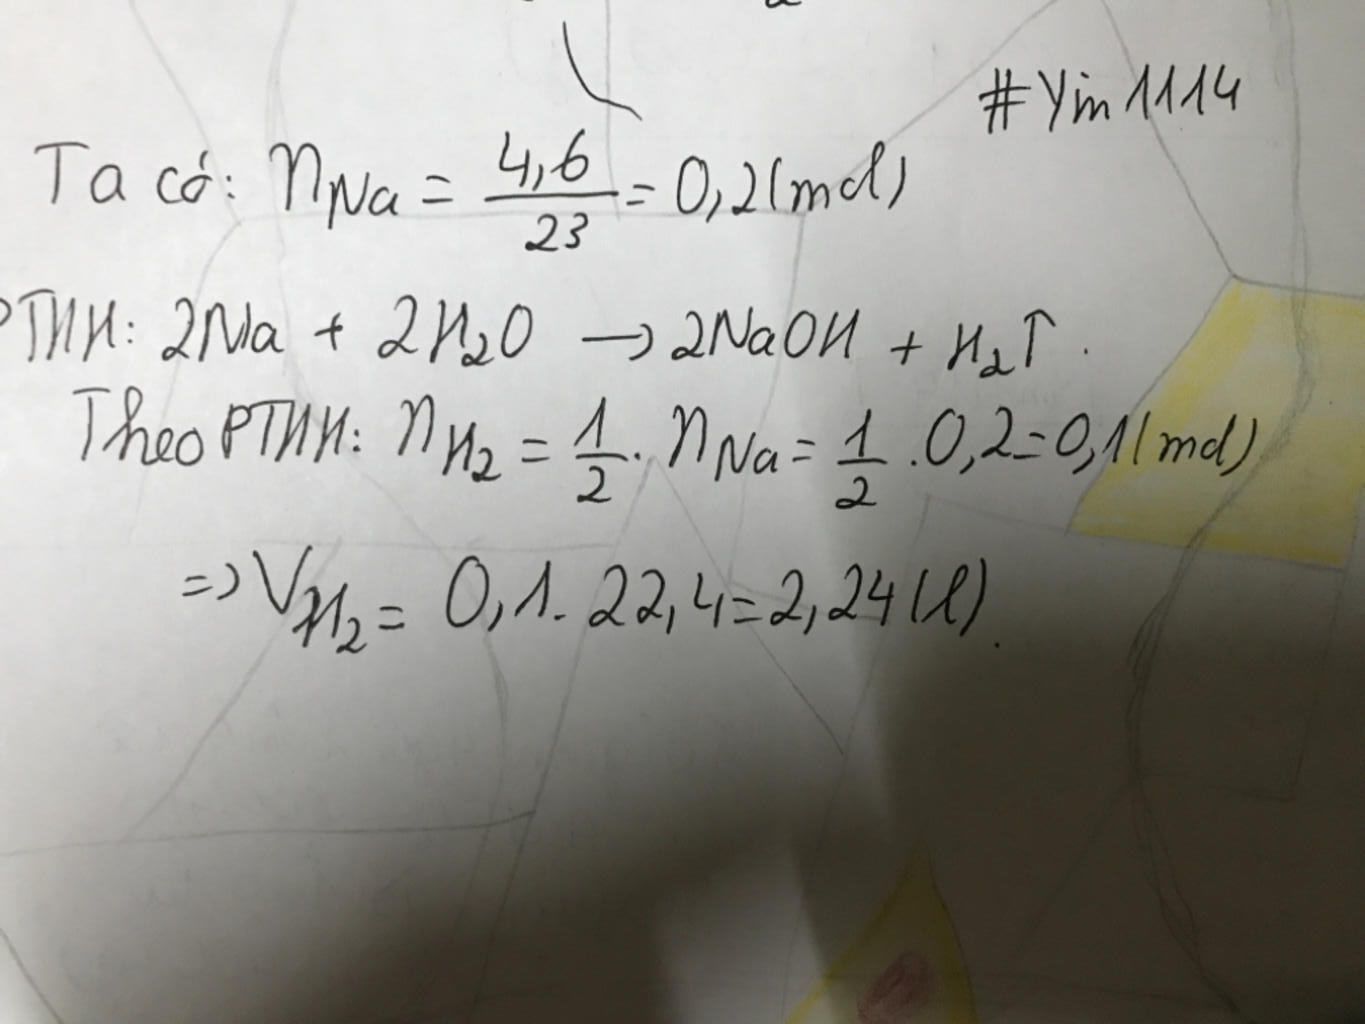 #Yin1114
Ta có: nNa = 4,6/23 = 0,2(mol)
PTHH: 2Na + 2H₂O → 2NaOH + H₂↑.
Theo PTHH: nH₂ = 1/2 . nNa = 1/2 . 0,2 = 0,1(mol)
=> VH₂ = 0,1 . 22,4 = 2,24(l).